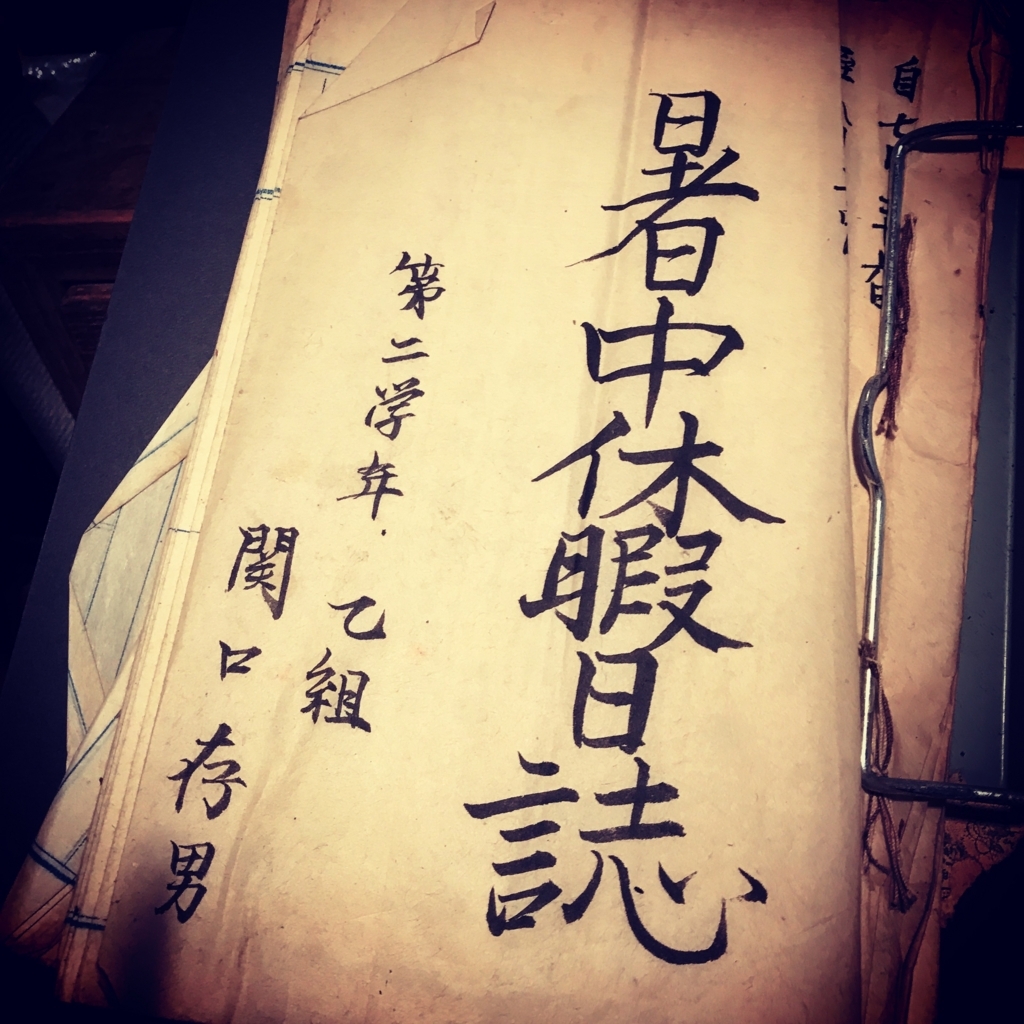 暑中休暇日誌
第二学年.
乙組
関口存男